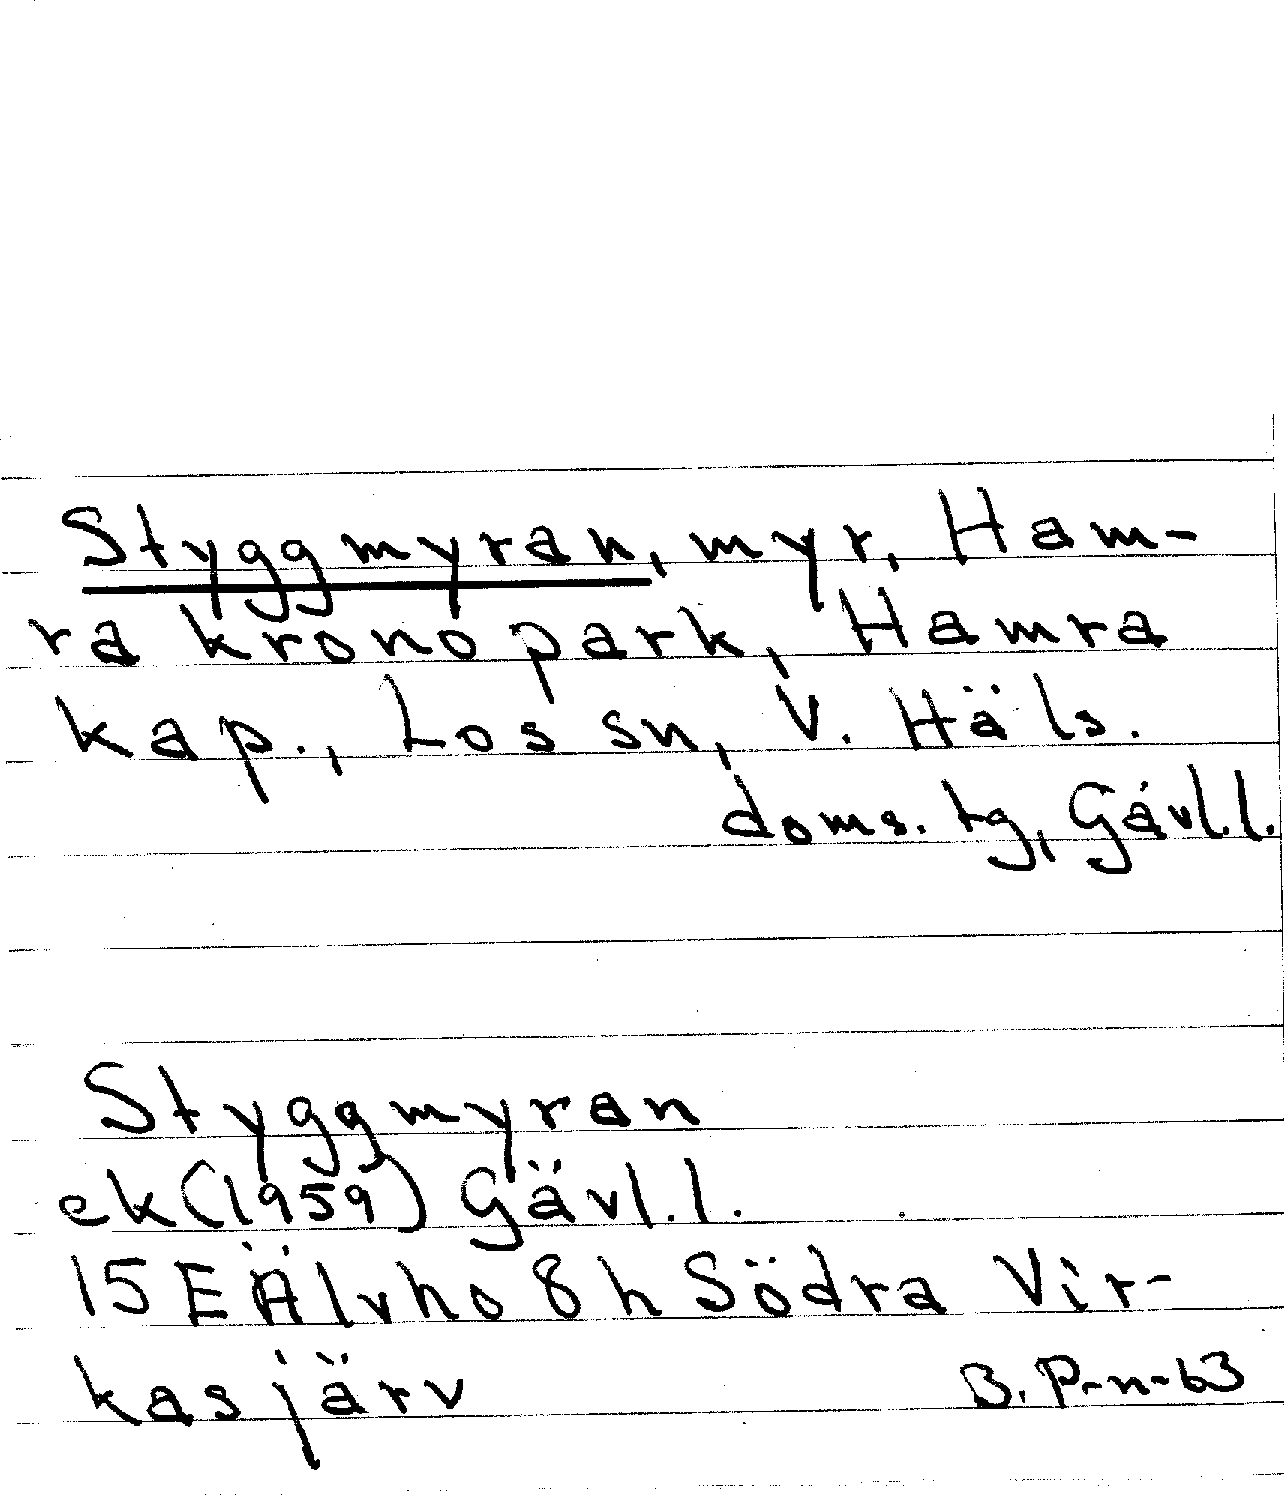 Styggmyran, myr, Ham-
ra kronopark, Hamra
kap., Los sn, V. Häls.
doms. tg, Gävl.l.
Styggmyran
ek (1959) Gävl.l.
15 E Älvho 8 h Södra Vir-
kasjärv
B. P-n-63